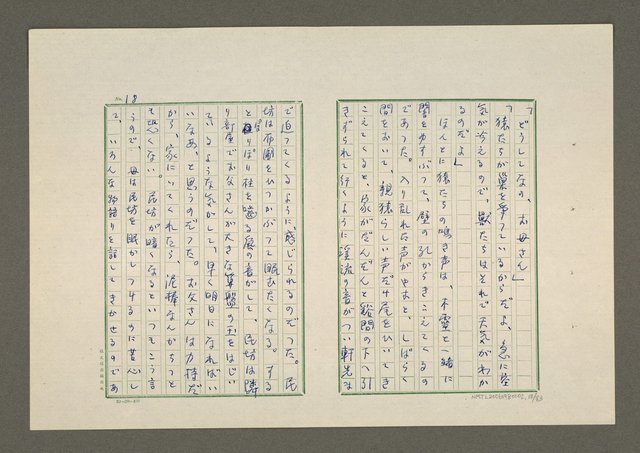 「どうしてなの、お母さん」
「猿たちが巣を争っているからだよ、急に空
気が冷えるので、獣たちはそれで天気がわか
るのだよ」
ほんとに猿たちの鳴き声は、木霊と一緒に
闇をゆすぶって、壁の孔からきこえてくるの
であった。入り乱れた声がやむと、しばらく
間をおいて、親猿らしい声だけ尾をひいてき
こえてくると、家がだんだんと谿間の下へ引
きずられて行くように渓流の音がつい軒先ま
で迫ってくるように感じられるのだった。民
坊は布團をひっかぶって眠むたくなる。する
とぽりぽり柱を噛る鼠の音がして、民坊は隣
り部屋でお父さんが大きな算盤の玉をはじい
ているような気がして、早く明日になればい
いなあ、と思うのだった。お父さんは力持だ
から、家にいてくれたら、泥棒なんかちっと
も恐くない。民坊が暗くなるといつもこう言
うので、母は民坊を眠かしつけるのに苦心し
て、いろんな物語りを話してきかせるのであ
No. 18
NMTL20060980002, 18/83